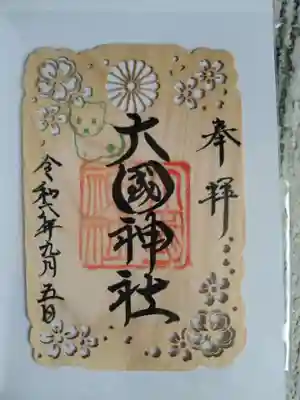 奉拝
大國神社
令和六年九月五日